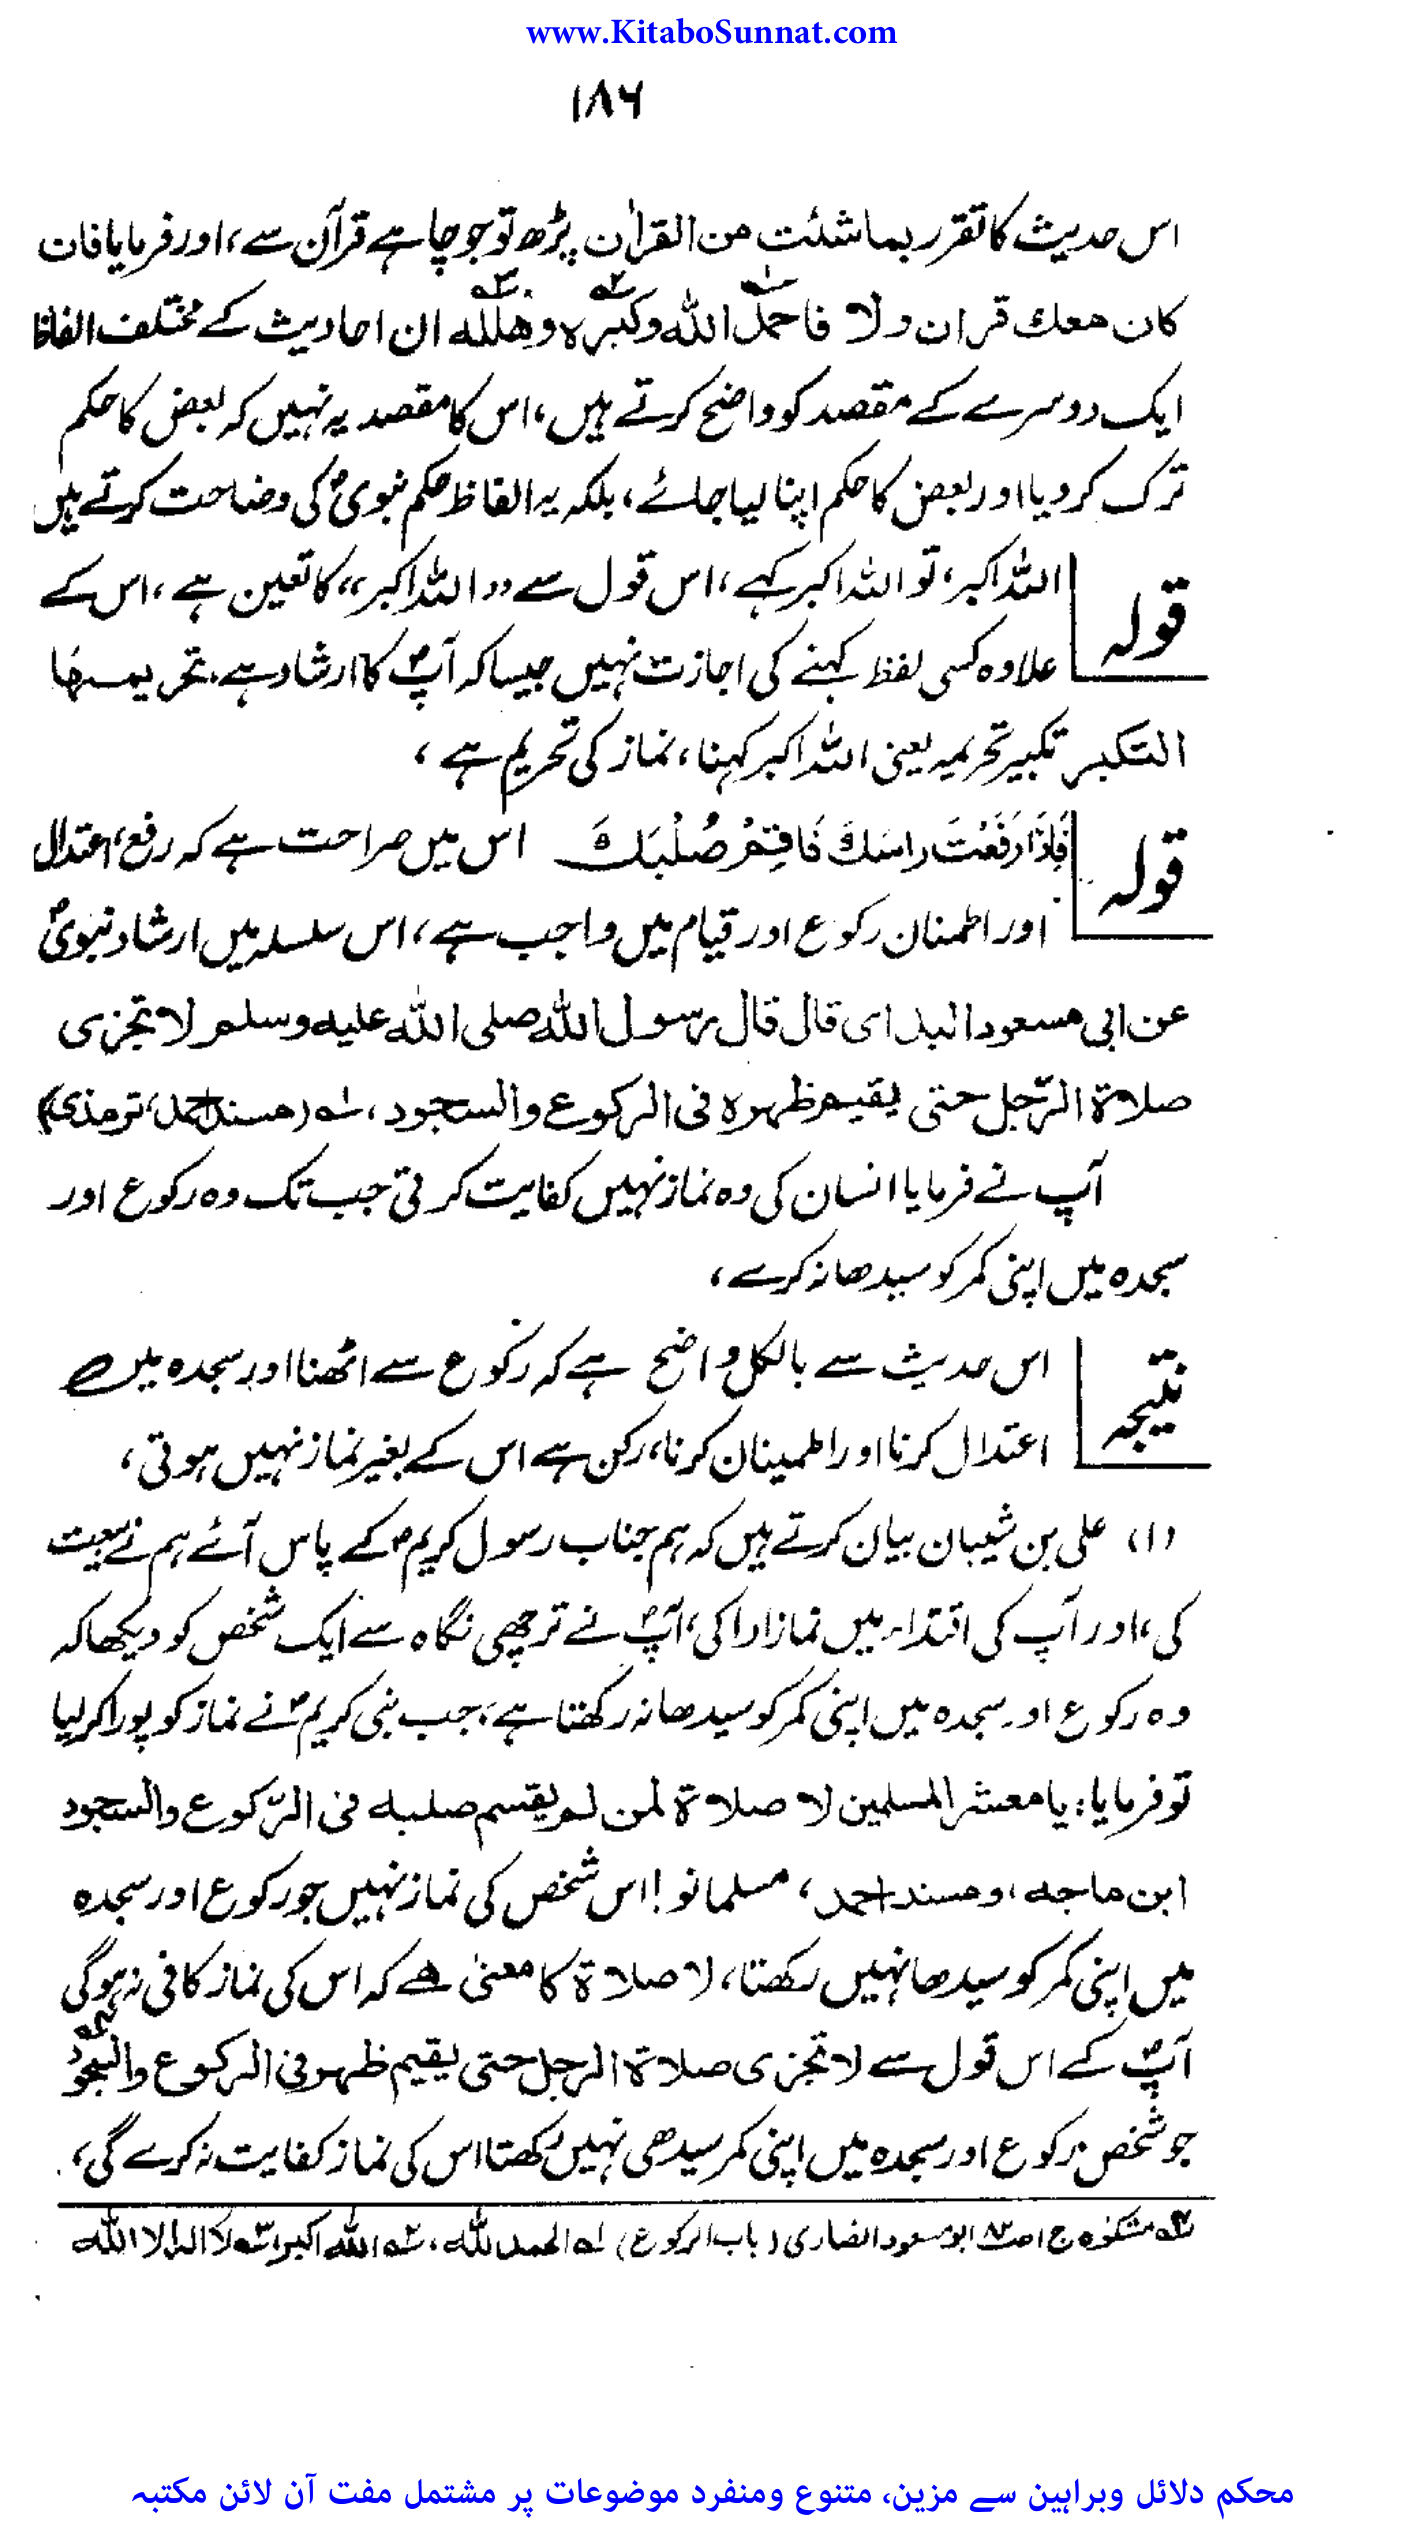 www.KitaboSunnat.com
۱۸۶
اس حدیث کا تقرر بما شئت من القرآن پڑھ تو جو چاہے قرآن سے، اور فرمایا فان
کان معك قران ولا فاحمد الله وکبره وهلله ان احادیث کے مختلف الفاظ
ایک دوسرے کے مقصد کو واضح کرتے ہیں، اس کا مقصد یہ نہیں کہ بعض کا حکم
ترک کر دیا اور بعض کا حکم اپنا لیا جائے، بلکہ یہ الفاظ حکم نبویؐ کی وضاحت کرتے ہیں
قولہ اللہ اکبر، تو اللہ اکبر کہے، اس قول سے ،،اللہ اکبر،، کا تعین ہے، اس کے
علاوہ کسی لفظ کہنے کی اجازت نہیں جیسا کہ آپؐ کا ارشاد ہے۔ تحریمها
التکبر تکبیر تحریمہ یعنی اللہ اکبر کہنا، نماز کی تحریم ہے،
قولہ فَاِذَا رَفَعْتَ راسَكَ فَاَقِمْ صُلْبَكَ اس میں صراحت ہے کہ رفع، اعتدال
اور اطمنان رکوع اور قیام میں واجب ہے، اس سلسلہ میں ارشاد نبویؐ
عن ابی مسعود البدای قال قال رسول الله صلی الله علیه وسلم لا تجزی
صلاة الرّجل حتی یقیم ظهره فی الرکوع والسجود، لہ (مسند احمد، ترمذی)
آپ نے فرمایا انسان کی وہ نماز نہیں کفایت کرتی جب تک وہ رکوع اور
سجدہ میں اپنی کمر کو سیدھا نہ کرے،
نتیجہ اس حدیث سے بالکل واضح ہے کہ رکوع سے اٹھنا اور سجدہ میں
اعتدال کرنا اور اطمینان کرنا، رکن ہے اس کے بغیر نماز نہیں ہوتی،
(۱) علی بن شیبان بیان کرتے ہیں کہ ہم جناب رسول کریمؐ کے پاس آئے ہم نے بیعت
کی، اور آپ کی اقتداء میں نماز ادا کی، آپؐ نے ترچھی نگاہ سے ایک شخص کو دیکھا کہ
وہ رکوع اور سجدہ میں اپنی کمر کو سیدھا نہ رکھتا ہے، جب نبی کریمؐ نے نماز کو پورا کر لیا
تو فرمایا: یا معشر المسلمین لا صلاة لمن لم یقسم صلبه فی الرّکوع والسجود
ابن ماجه، ومسند احمد، مسلمانو! اس شخص کی نماز نہیں جو رکوع اور سجدہ
میں اپنی کمر کو سیدھا نہیں رکھتا، لا صلاة کا معنیٰ ہے کہ اس کی نماز کافی نہ ہوگی
آپؐ کے اس قول سے لا تجزی صلاة الرجل حتی یقیم ظهره فی الرکوع والسجود
جو شخص رکوع اور سجدہ میں اپنی کمر سیدھی نہیں رکھتا اس کی نماز کفایت نہ کرے گی،
۴ہ مشکوٰہ ج ا صـ۸۲ ابو مسعود انصاری (باب الرکوع) لہ الحمد للہ، ۲ہ اللہ اکبر، ۳ہ لا الہ الا اللہ
محکم دلائل وبراہین سے مزین، متنوع ومنفرد موضوعات پر مشتمل مفت آن لائن مکتبہ